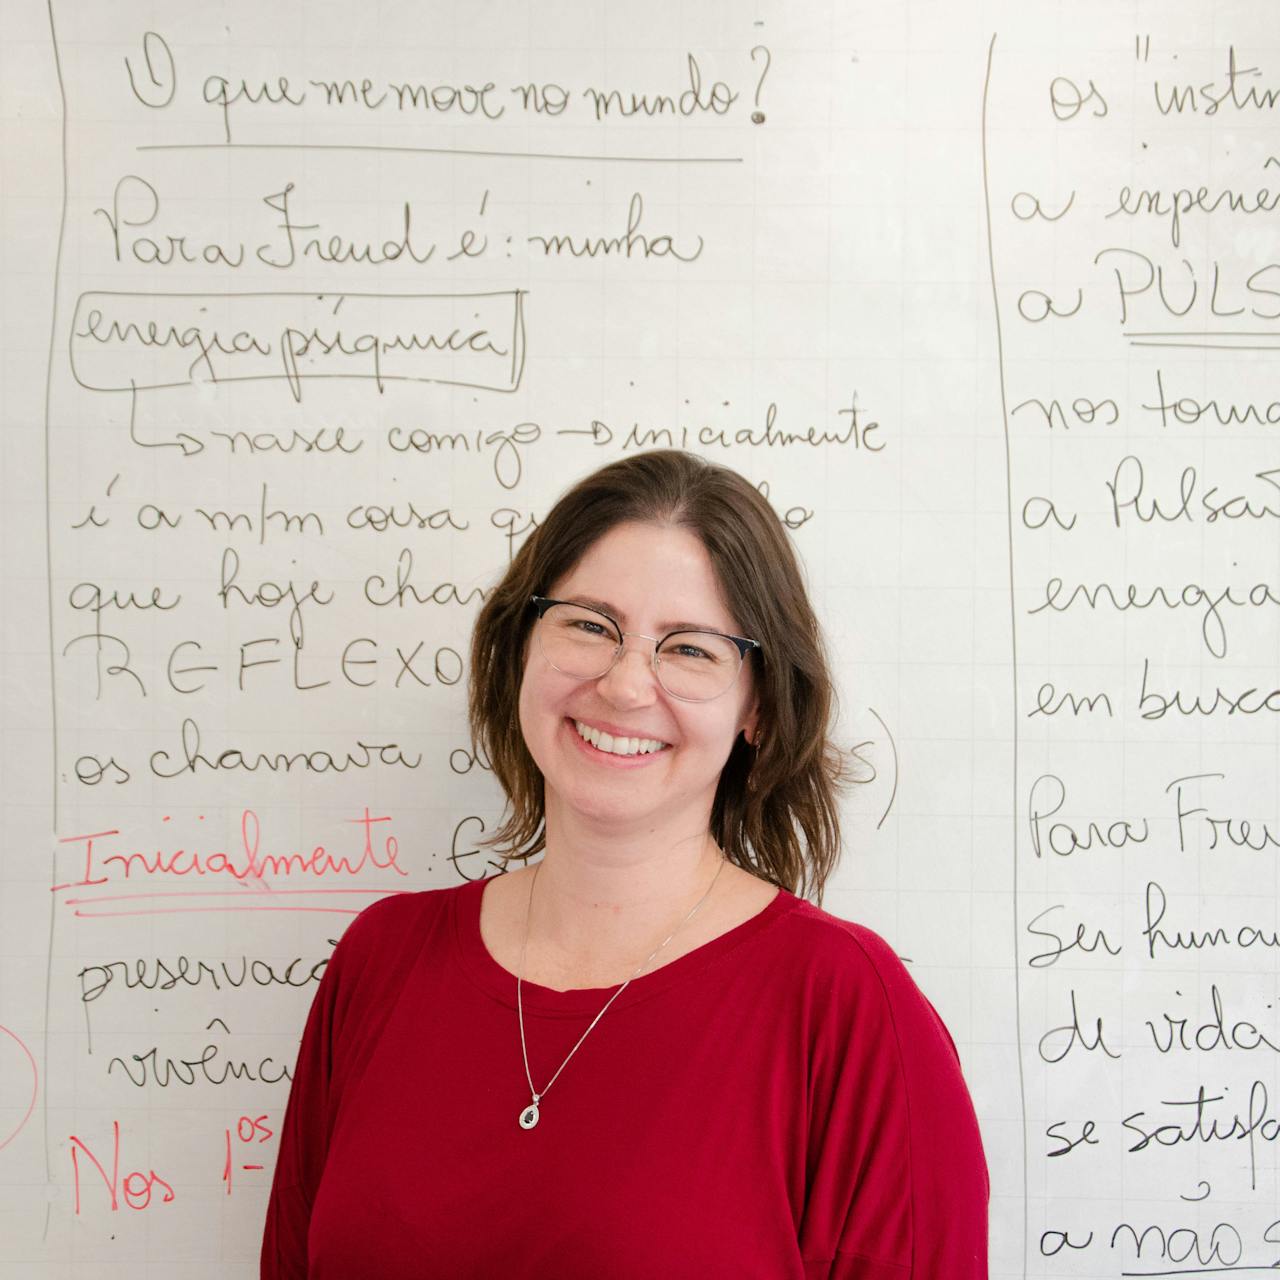 O que me move no mundo?
Para Freud é: minha
energia psíquica
nasce comigo → inicialmente
é a m/m coisa
que hoje
REFLEXO
os chamava
Inicialmente:
vivênci
Nos 1os
os "instin
a experiê
a PULS
nos torna
a Pulsaõ
energia
em busca
Para Freu
Ser human
de vida
se satisfa
a não s